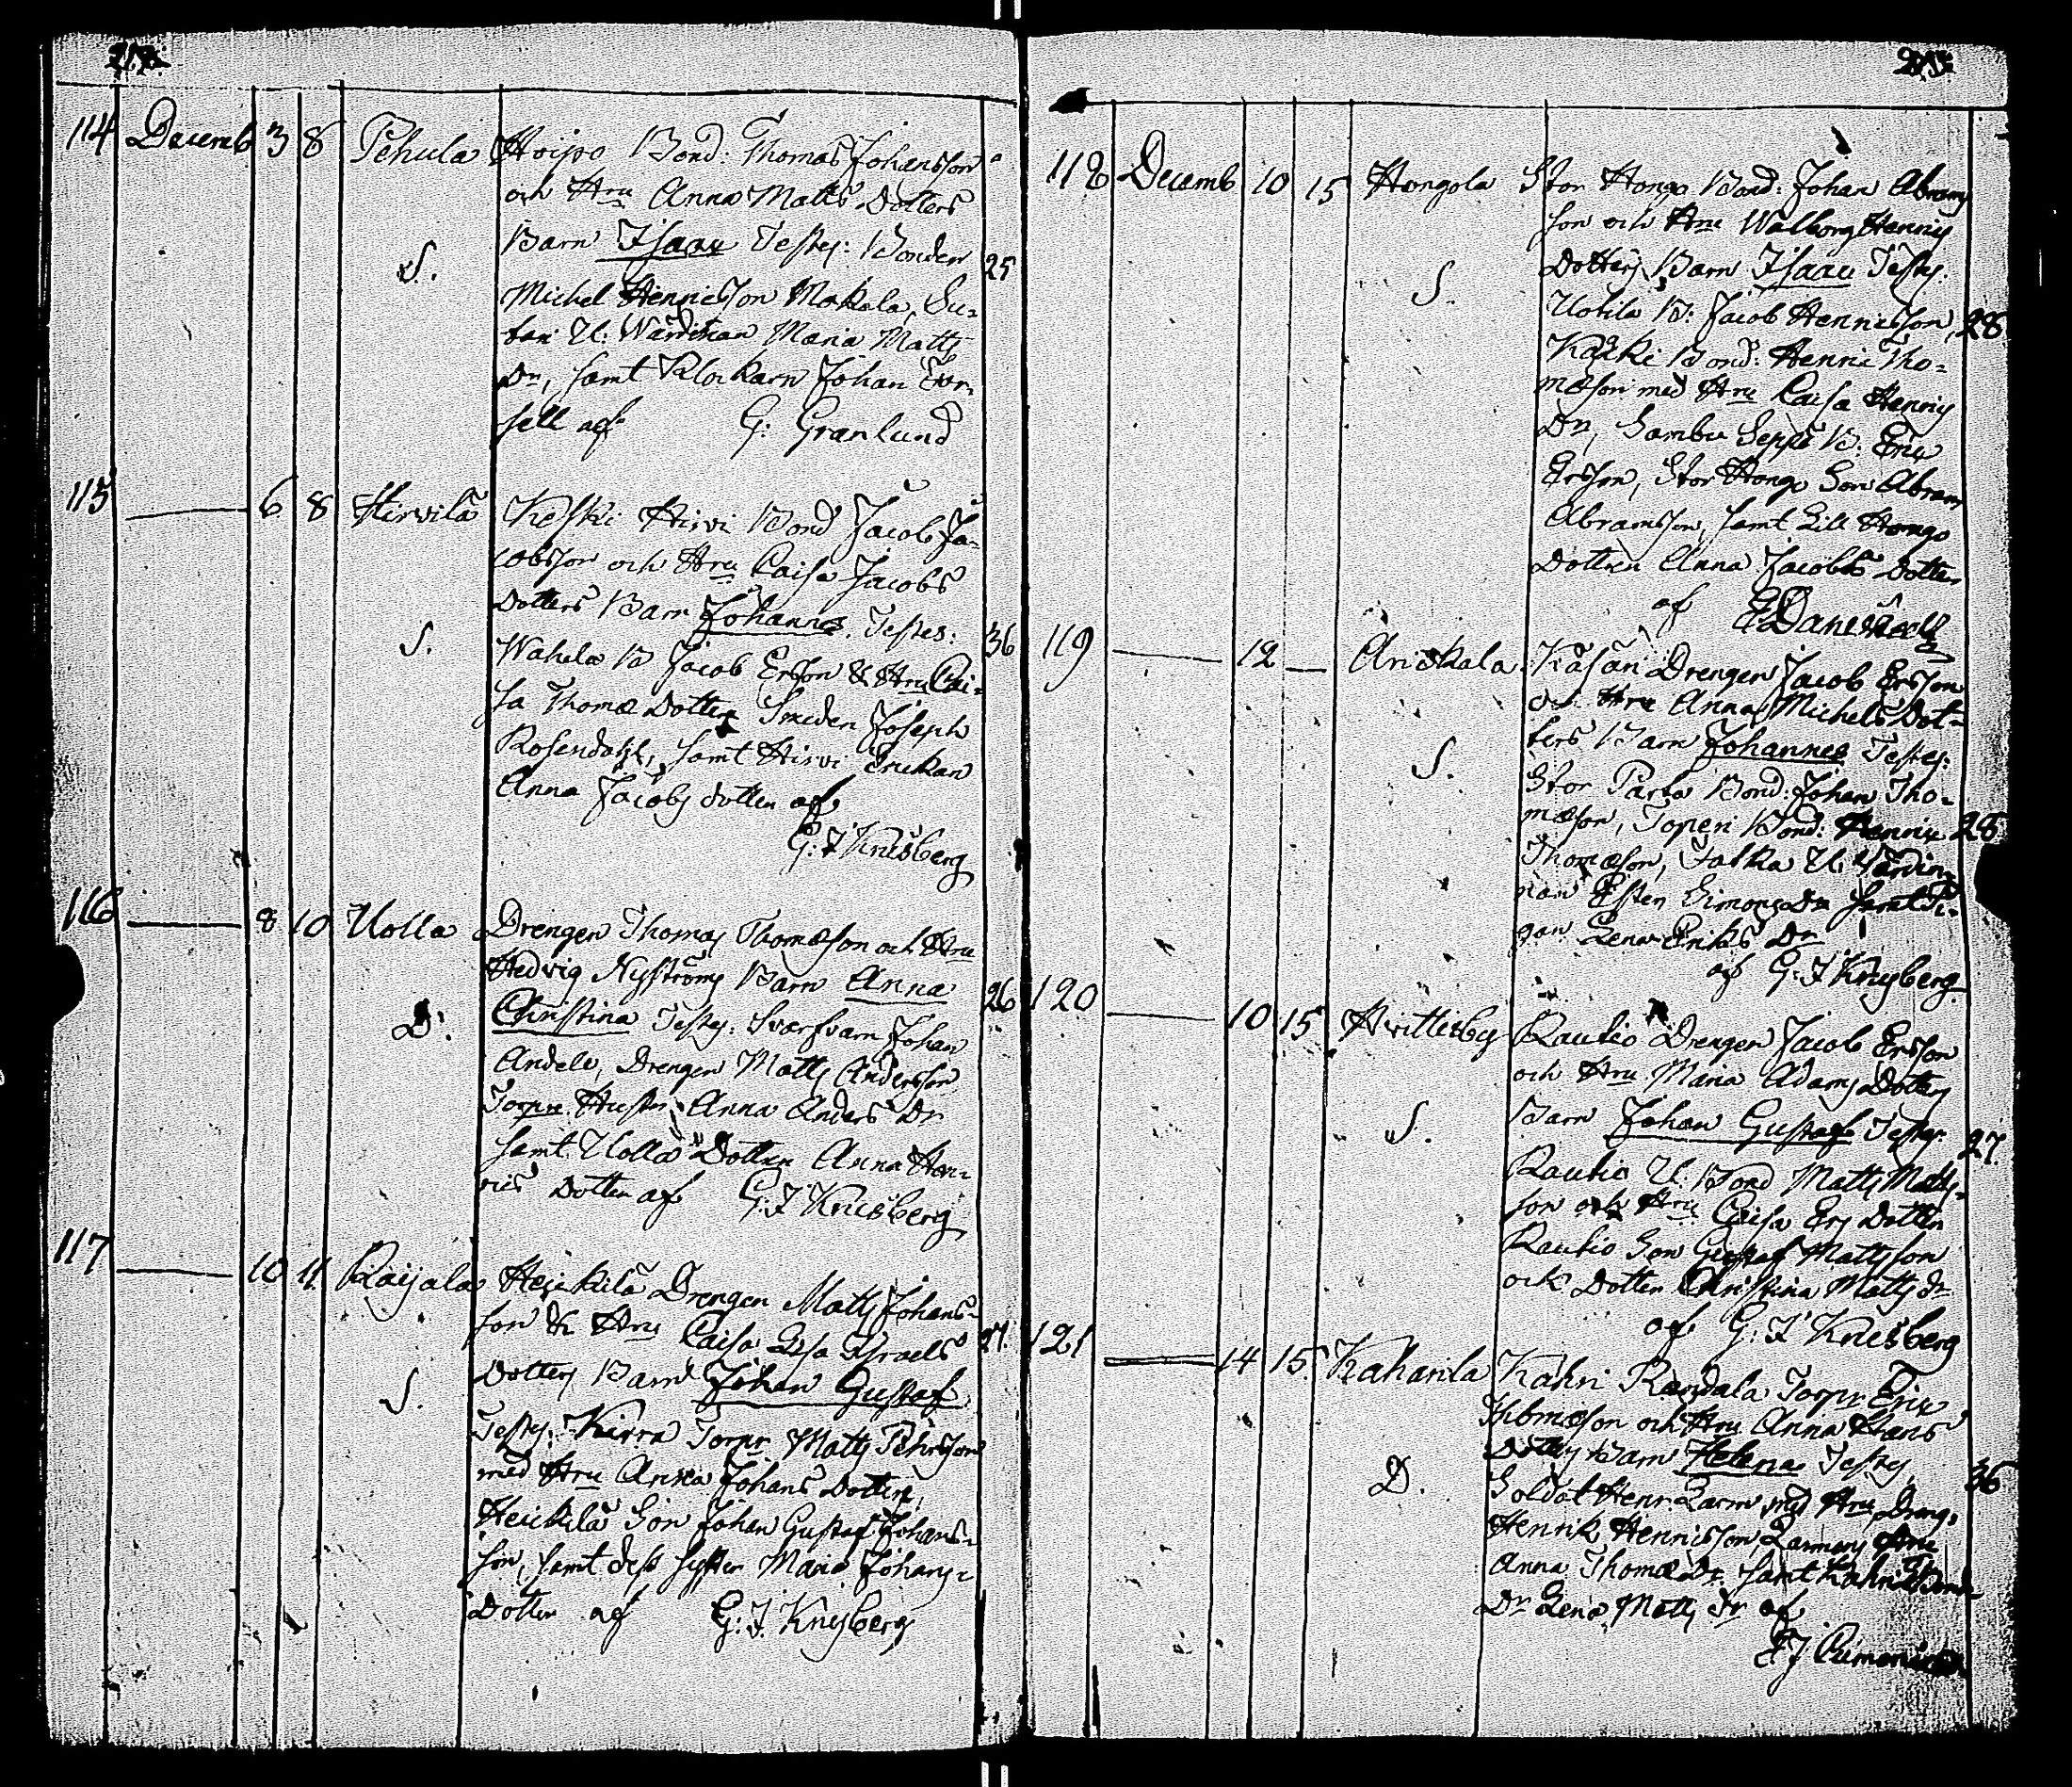 114 Decemb 3 8 Pehula Hoipo Bond: Thomas Johansson
och Hru Anna Matts Dotters
Barn Isaac Testes: Bonden
S. 25
Michel Henricsson Mokala, Su-
tari U: Wärdinan Maria Matts
Dr, samt Klockarn Johan
sell af G: Granlund
115 6 8 Hirvilä Keski Hirvi Bond Jacob Ja-
cobsson och Hru Caisa Jacobs
Dotters Barn Johannes. Testes:
S. 36
Wahela B Jacob Ersson & Hru Cai-
sa Thomæ Dotter Smeden Joseph
Rosendahl, samt Hirvi Enckan
Anna Jacobs dotter af
G: F Krusberg
116 8 10 Uolla Drengen Thomas Thomæson och Hru
Hedvig Nyströms Barn Anna
26
Christina Testes: Svarfvarn Johan
D:
Andele, Drengen Matts Andersson
Torpu Hustr Anna Anders Dr
samt Uolla Dotter Anna Hen-
rics Dotter af G: F Krusberg
117 10 11 Raijala Heickilä Drengen Matts Johans-
son & Hru Caisa Lisa Israels
27.
Dotters Barn Johan Gustaf
S.
Testes: Kirra Torpr Matts Pehrsson
med Hru Anna Johans Dotter,
Heickilä Son Johan Gustaf Johans-
son, samt dess syster Maria Johans-
Dotter af G: F. Krusberg
118 Decemb 10 15 Hongola Stor Hongo Bond: Johan Abram
son och Hru Walborg Henrics
Dotters Barn Isaac Testes:
S.
Uotila B: Jacob Henricsson, 28
Kärki Bond: Henric Tho-
mæson med Hru Caisa Henrics
Dr, Sambu Seppä B: Eric
Ersson, Stor Hongo Son Abram
Abramsson, samt Lill Hongo
Dottren Anna Jacobs Dotter
af
119 12 Ariskala Käsäri Drengen Jacob Ersson
och Hru Anna Michels Dot-
ters Barn Johannes Testes:
S.
Stor Parba Bond: Johan Tho-
mæson, Toperi Bond: Henric 28
Thomæson, Jatka U: Wärdin
nan Ester Simons Dr samt Pi-
gan Lena Eriks Dr
af G: F Krusberg
120 10 15 Hvittisby Rautio Drengen Jacob Ersson
och Hru Maria Adams Dotters
Barn Johan Gustaf Testes:
S. 27.
Rautio U: Bond Matts Matts-
son och Hru Caisa Ers Dotter
Rautio Son Gustaf Mattsson
och Dotter Christina Matts dr
af G: F Krusberg
121 14 15. Kaharila Kahri Randala Torpr Eric
Thomæson och Hru Anna Hans
Dotters Barn Helena Testes
D. 36
Soldat Henr Larm med Hru Dreng.
Henrik Henricsson Larmens Hru
Anna Thomæ Dr. samt Kahri
Dr Lena Matts dr af